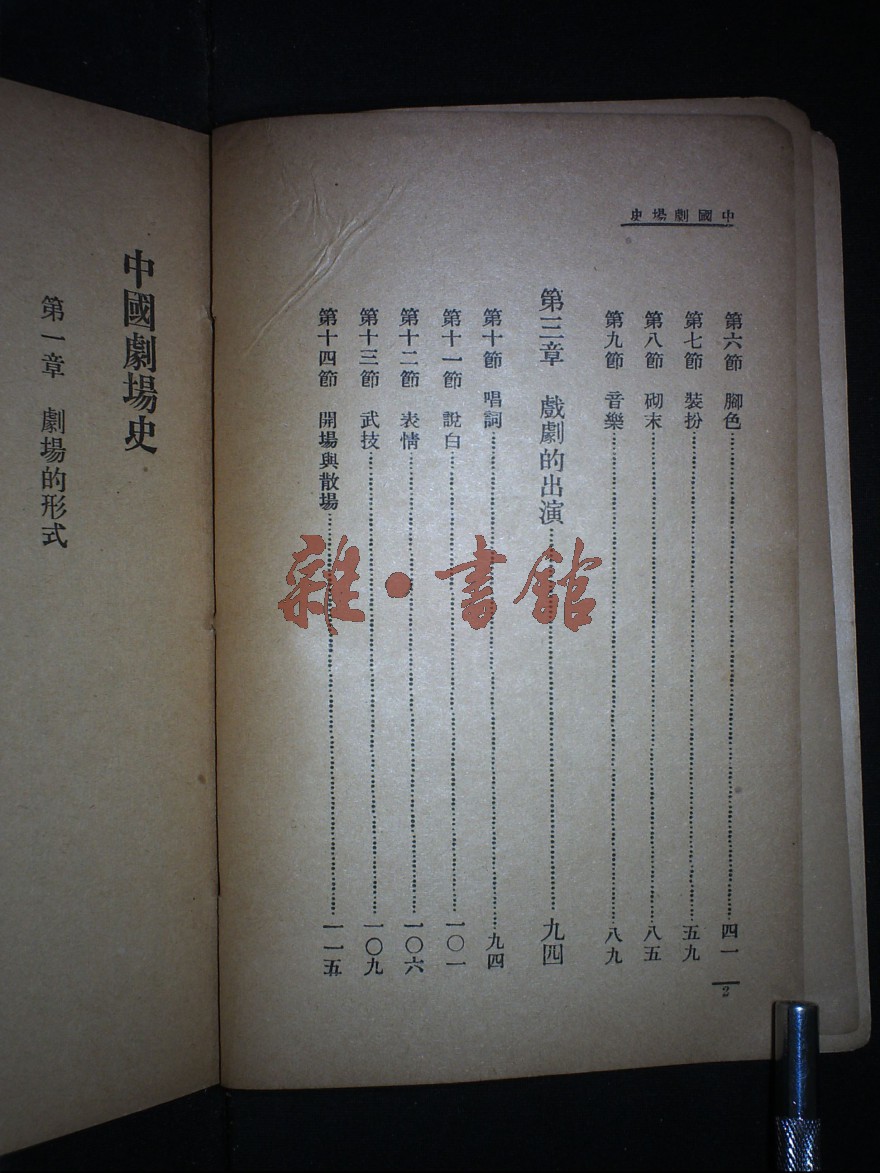 中國劇場史
第六節 腳色 四一
第七節 裝扮 五九
第八節 砌末 八五
第九節 音樂 八九
第三章 戲劇的出演 九四
第十節 唱詞 九四
第十一節 說白 一〇一
第十二節 表情 一〇六
第十三節 武技 一〇九
第十四節 開場與散場 一一五
2
中國劇場史
第一章 劇場的形式
雜·書館